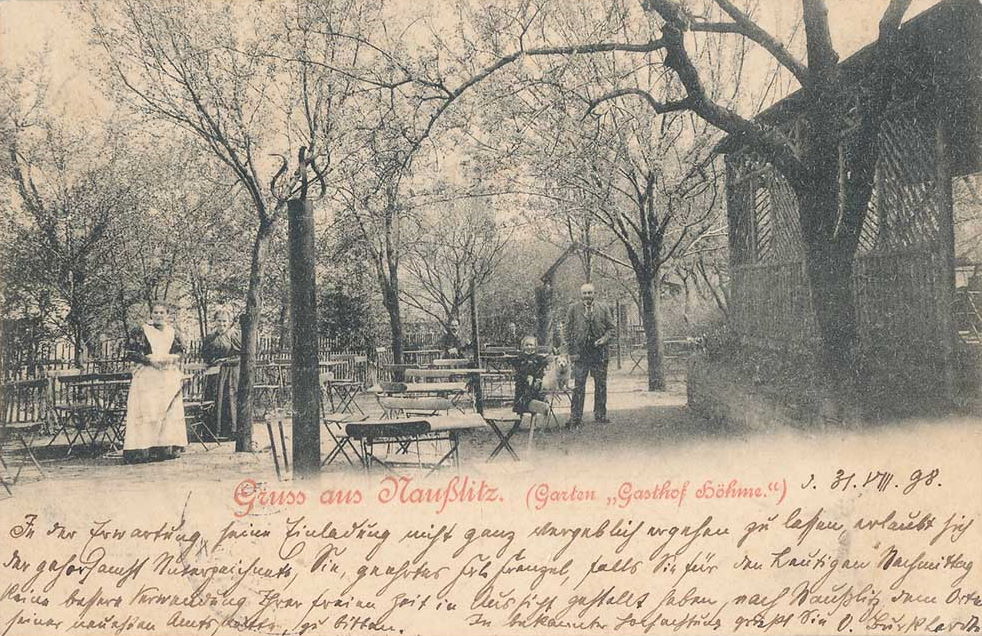 Gruss aus Naußlitz. (Garten „Gasthof Böhme.“) d. 31. VIII. 98.
In der Erwartung, seine Einladung nicht ganz vergeblich ergehen zu lassen, erlaubt sich
der gehorsamst Unterzeichnete, Sie, geehrtes Frl. Frenzel, falls Sie für den heutigen Nachmittag
keine bessere Verwendung Ihrer freien Zeit in Aussicht gestellt haben, nach Naußlitz dem Orte
seiner neuesten Amts, zu bitten. In bekannter Hochachtung grüßt Sie O. Burkhardt